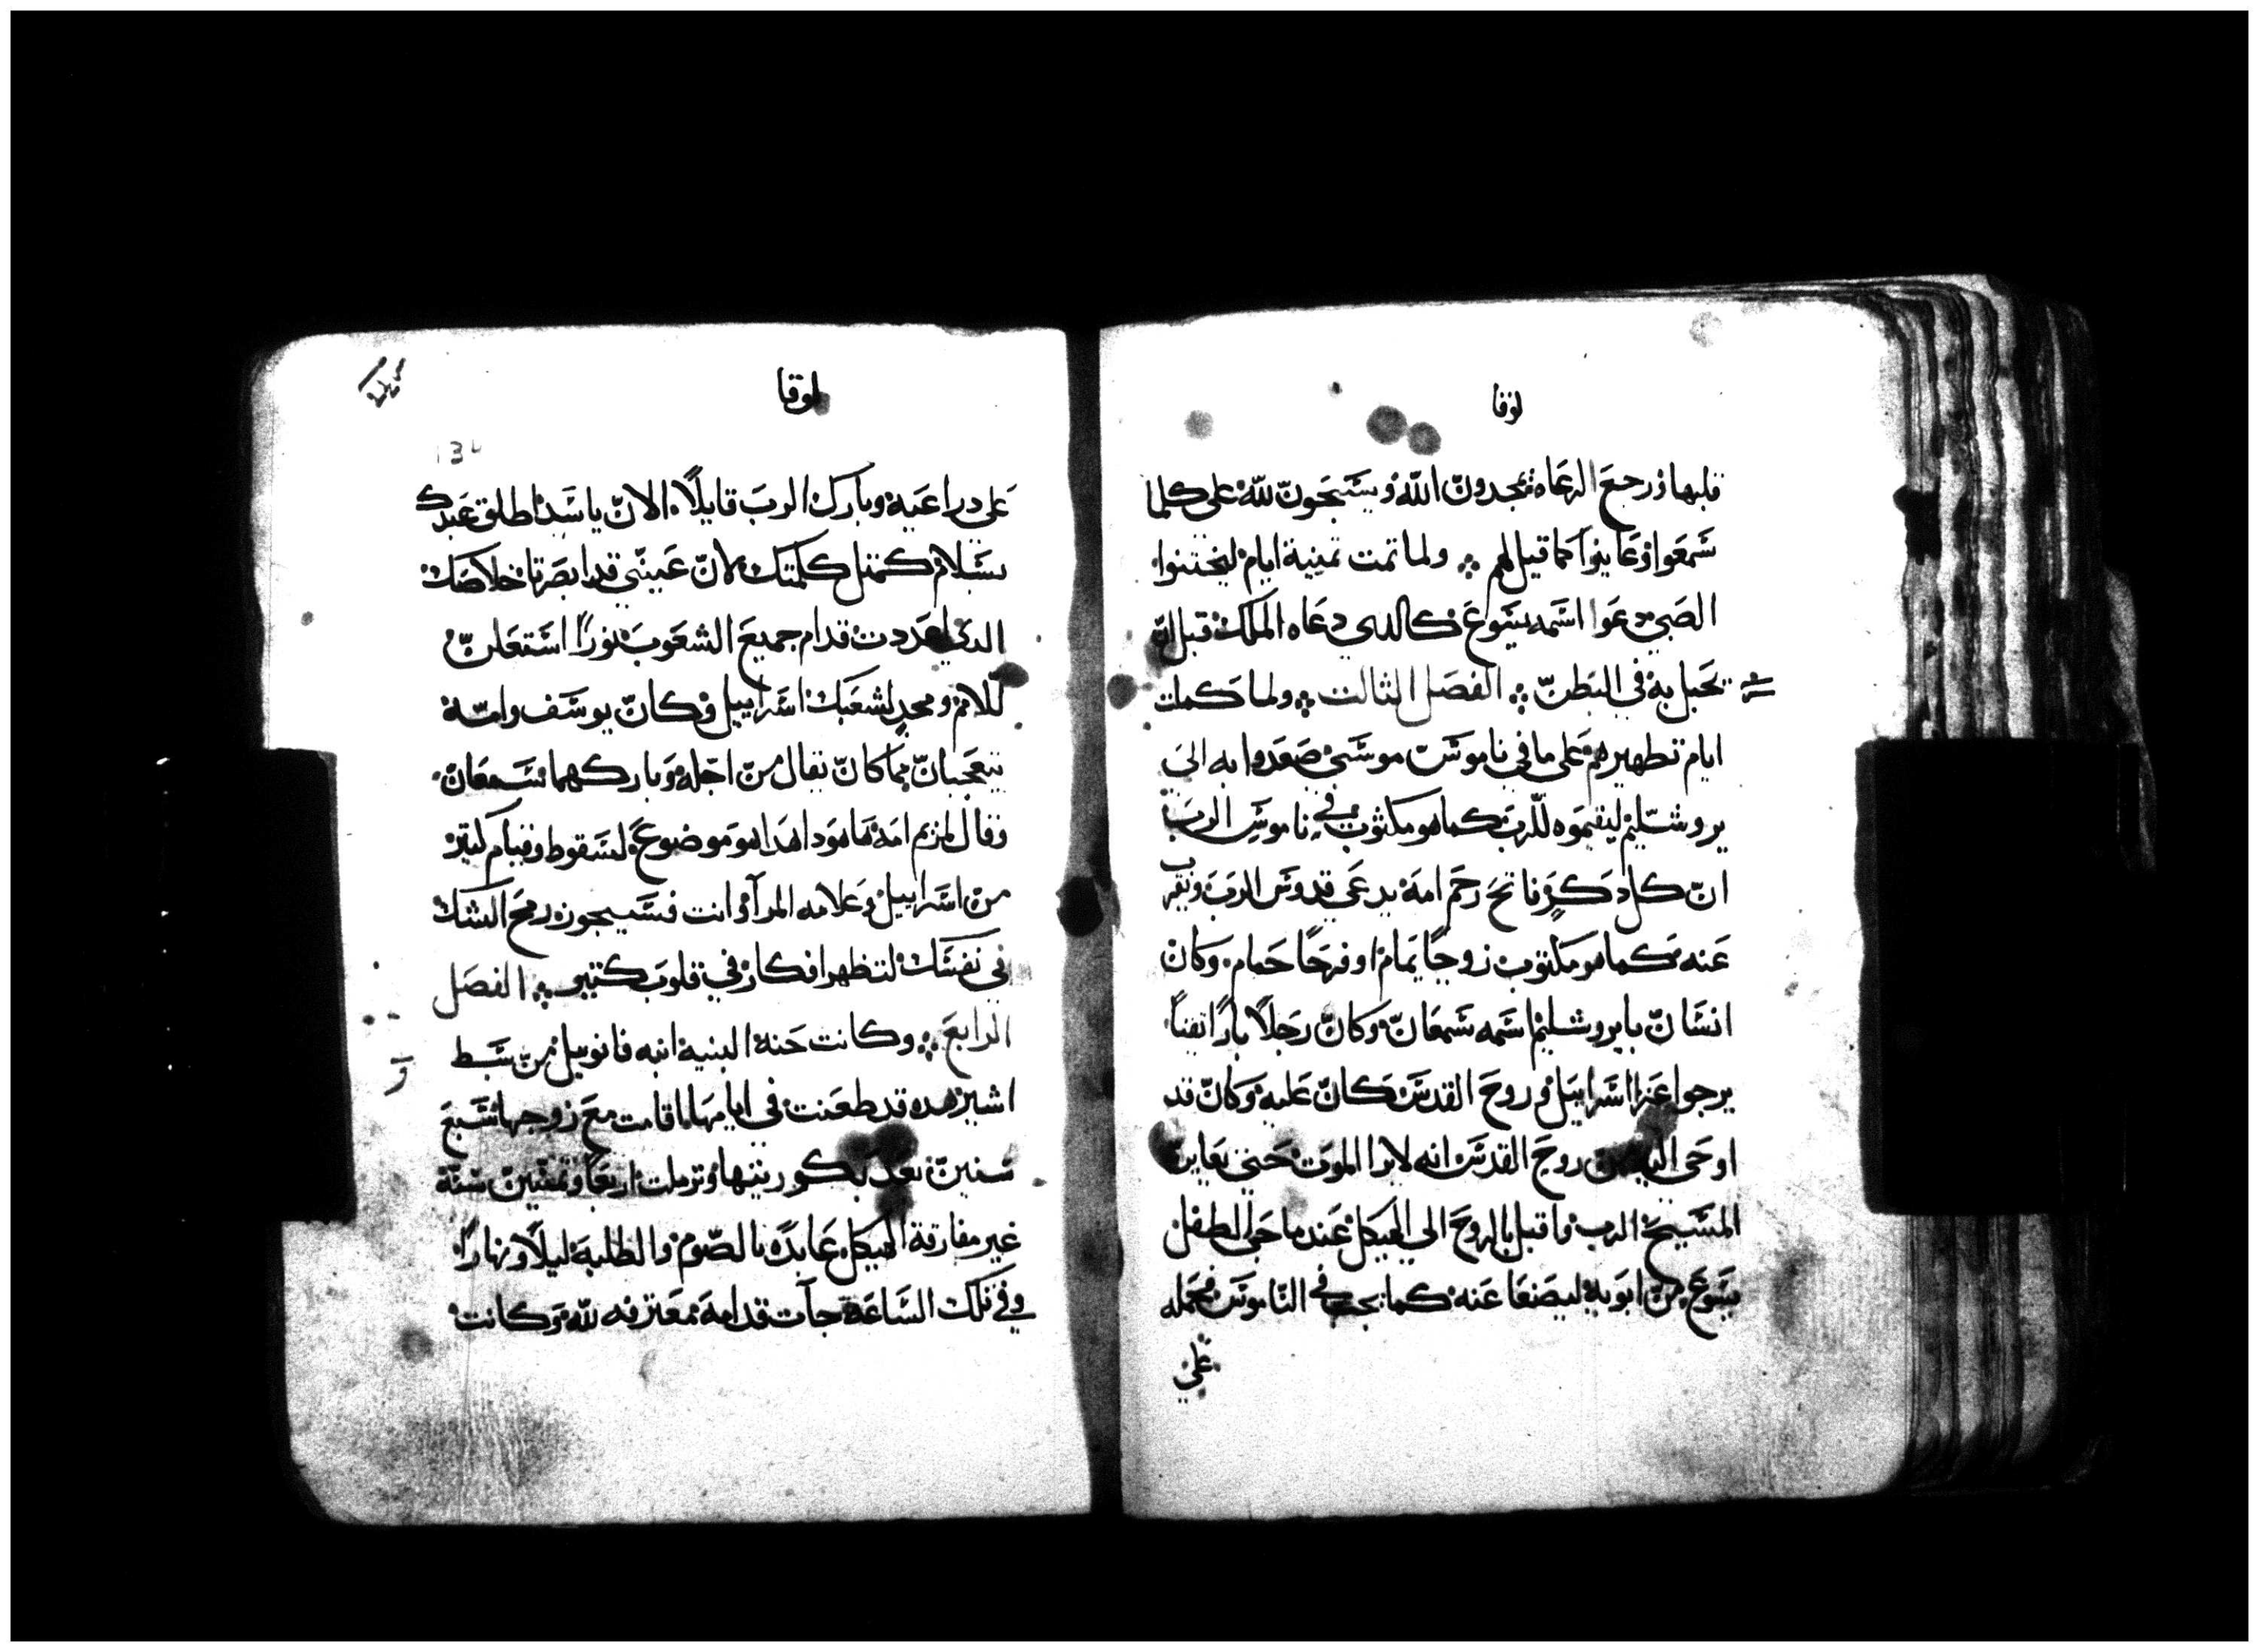 لوقا
قلبها ورجع الرعاه يمجدون الله ويسبحون لله على كلما
سمعوا وعاينوا كما قيل لهم ولما تمت ثمنية ايام ليختنوا
الصبي دعوا اسمه يسوع كالدي دعاه الملاك قبل ان
تحبل به في البطن الفصل الثالت ولما كملت
ايام تطهيرهم على ما في ناموس موسى صعدوا به الي
يروشليم ليقيموه للرب كما هو مكتوب في ناموس الرب
ان كل دكر فاتح رحم امه يدعي قدوس الرب ويقرب
عنه كما هو مكتوب زوجا يمام او فرخا حمام وكان
انسان بايروشليم اسمه سمعان وكان رجلا بارا تقيا
يرجوا عزا اسراييل وروح القدس كان عليه وكان قد
اوحى اليه من روح القدس انه لا يرا الموت حتي يعاين
المسيح الرب واقبل بالروح الي الهيكل عند ما جا الطفل
يسوع من ابويه ليصنعا عنه كما يجب في الناموس فحمله
على
لوقا
134
علي دراعيه وبارك الرب قايلا الان يا سيد اطلق عبدك
بسلام كمتل كلمتك لان عيني قد ابصرتا خلاصك
الدي اعددت قدام جميع الشعوب نورا استعلن
للامم ومجد لشعبك اسراييل وكان يوسف وامه
يتعجبان مما كان يقال من اجله وباركهما سمعان
وقال لمريم امه هاهودا هدا هو موضوع لسقوط وقيام كتير
من اسراييل وعلامه المرآ وانت فسيجوز رمح الشك
في نفسك لتظهر افكار في قلوب كتير الفصل
الرابع وكانت حنة النبية ابنه فانوييل من سبط
اشير هده قد طعنت في ايامها اقامت مع زوجها سبع
سنين بعد بكوريتها وترملت اربعا وثمنين سنة
غير مفارقة الهيكل عابدة بالصوم والطلبة ليلا ونهارا
وفي تلك الساعة جآت قدامه معترفه لله وكانت